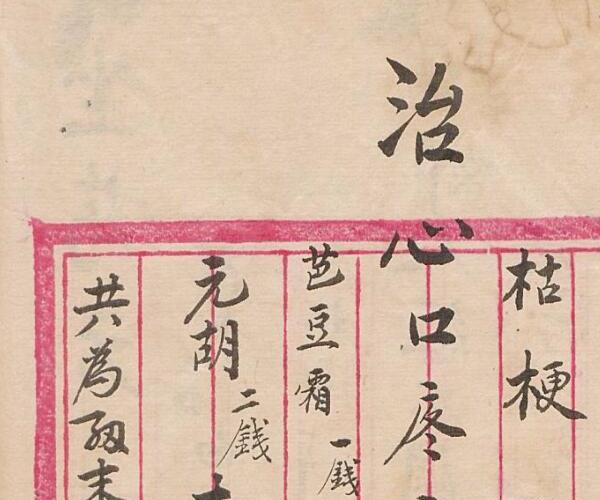 枯梗
治心口疼
芭豆霜一錢
元胡二錢
共為細末